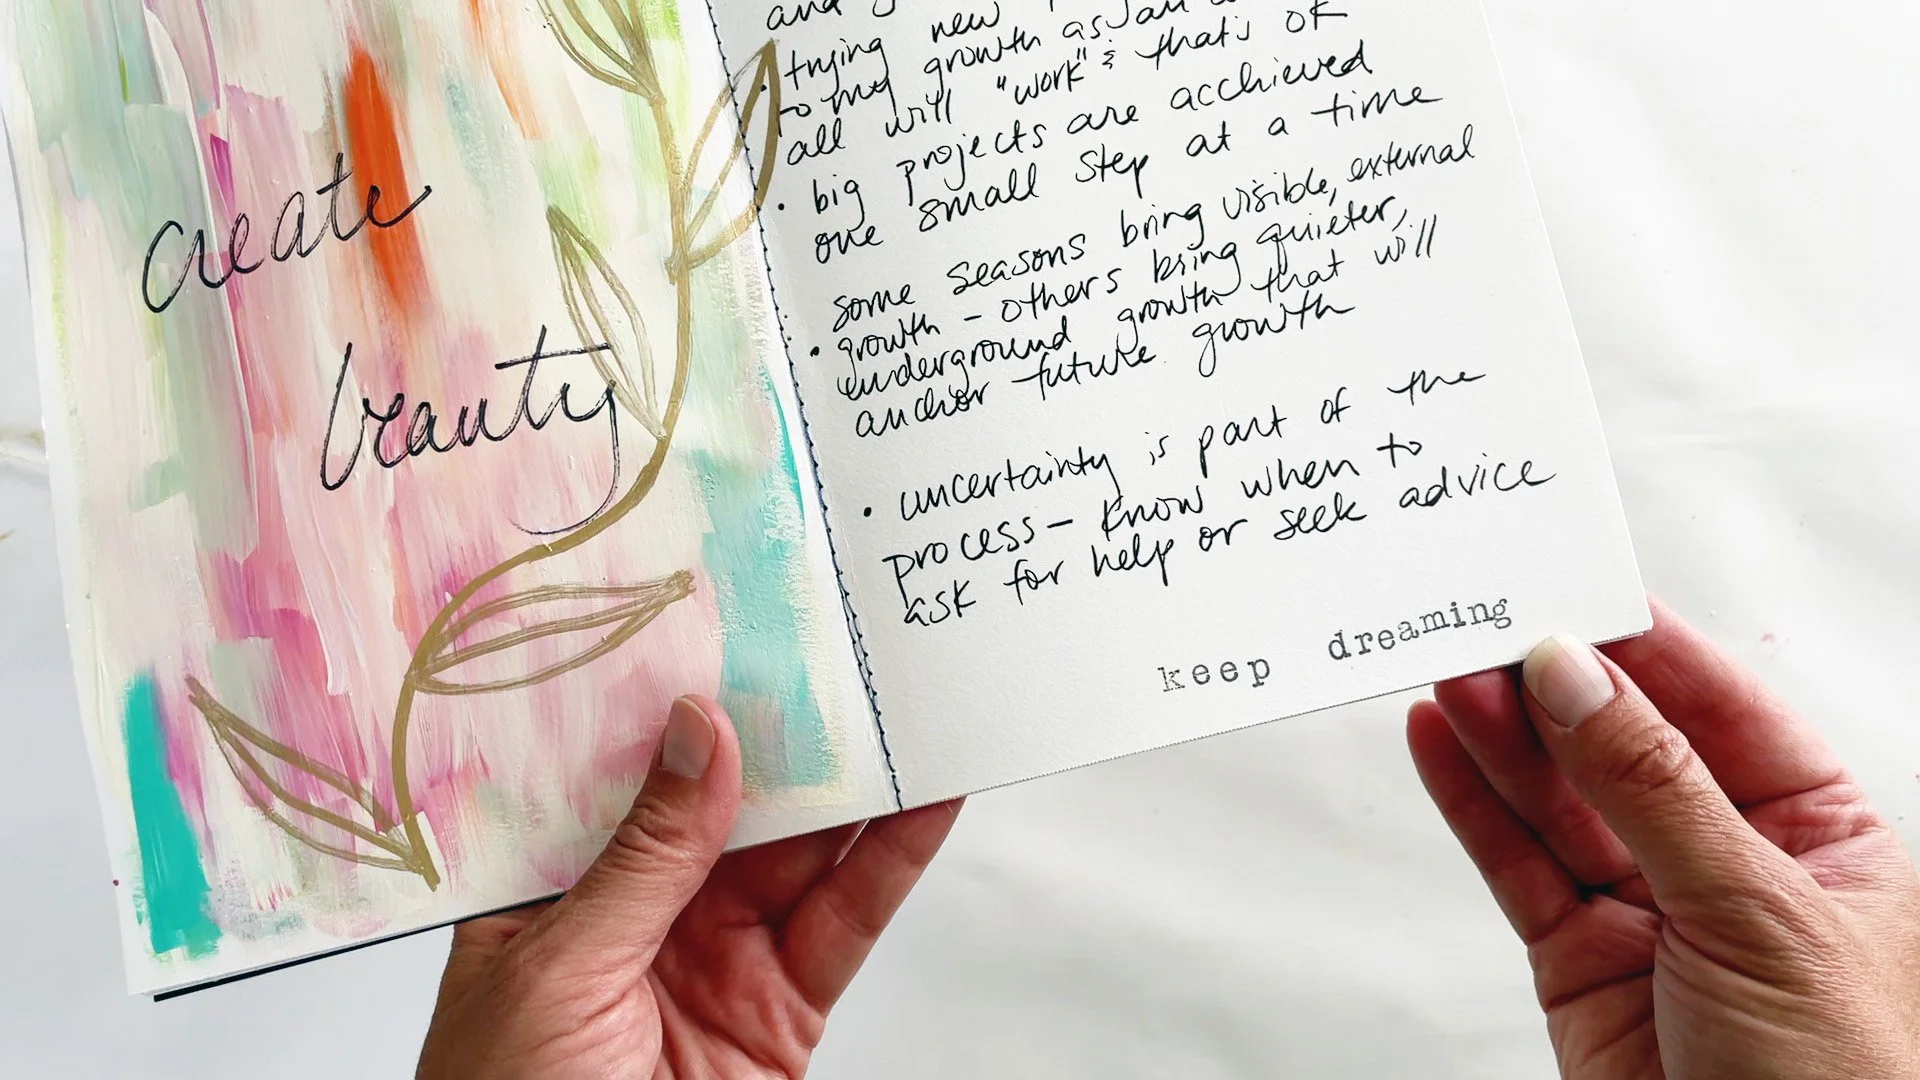 create
beauty
and
trying new
to my growth as an
all will "work" & that's ok
• big projects are acchieved
one small step at a time
some seasons bring visible, external
• growth - others bring quieter,
underground growth that will
anchor future growth
• uncertainty is part of the
process - know when to
ask for help or seek advice
keep dreaming